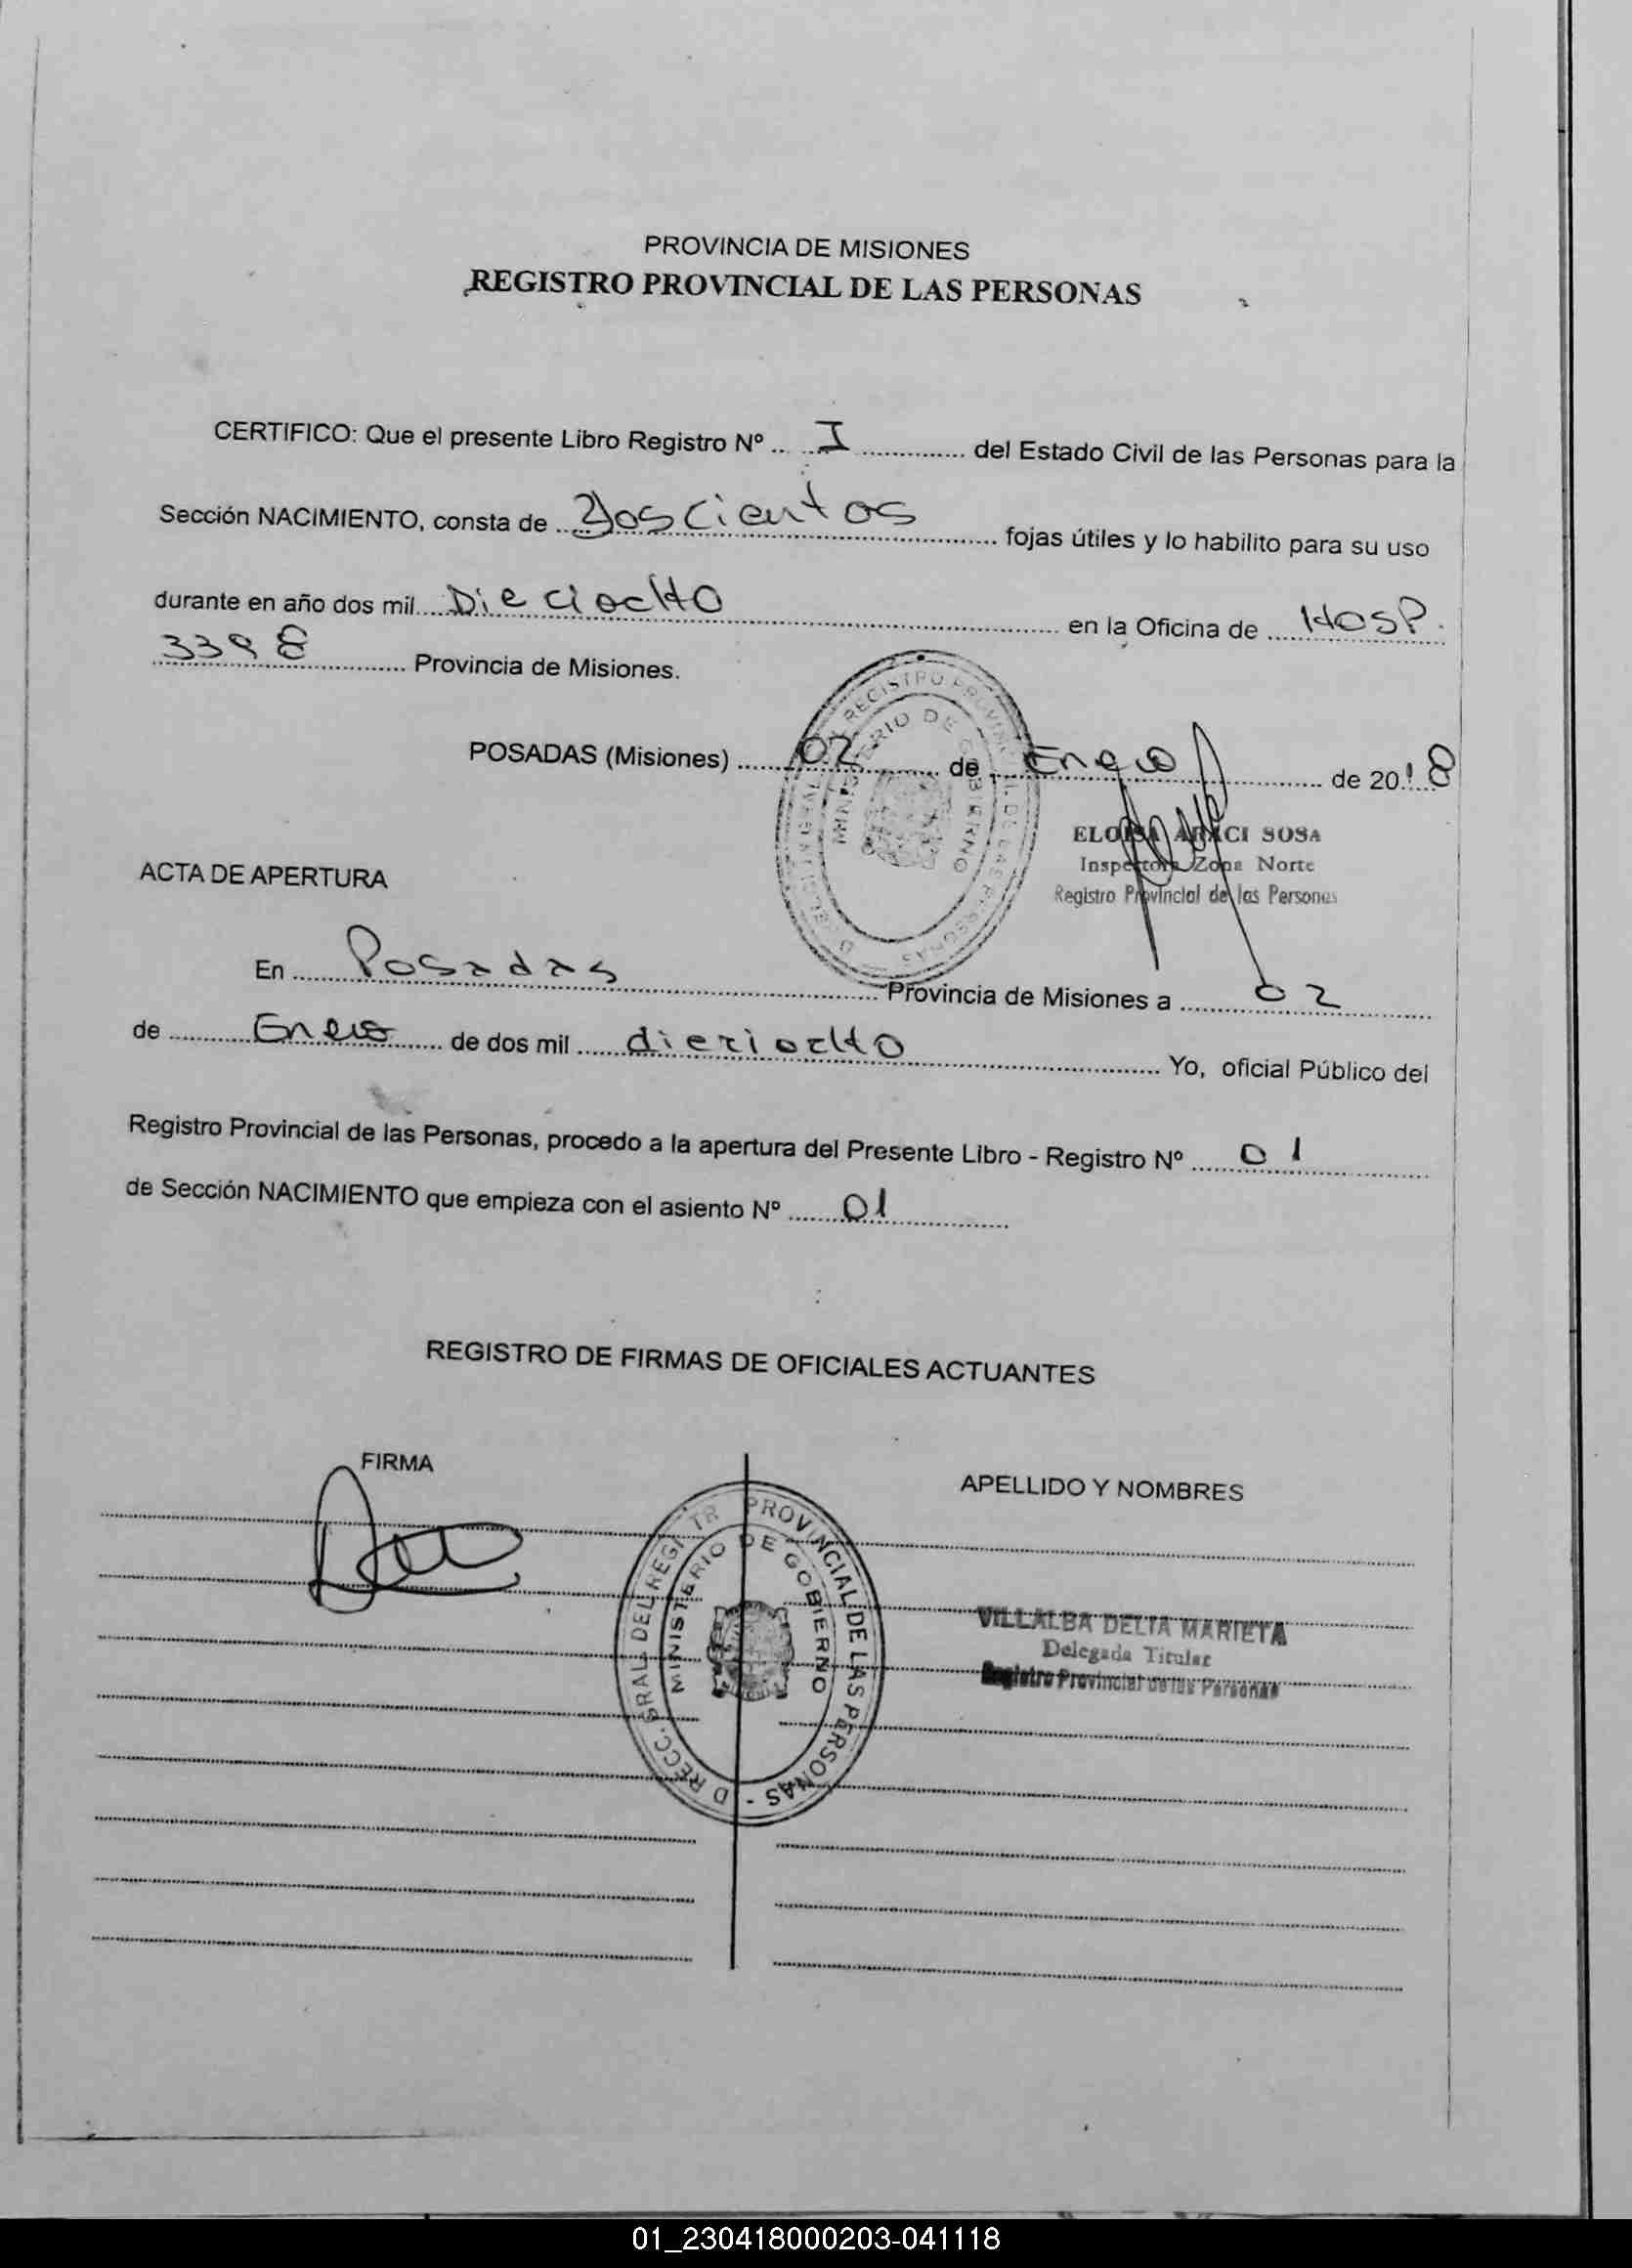 PROVINCIA DE MISIONES
REGISTRO PROVINCIAL DE LAS PERSONAS
CERTIFICO: Que el presente Libro Registro Nº ... I ... del Estado Civil de las Personas para la
Sección NACIMIENTO, consta de ... Doscientos ... fojas útiles y lo habilito para su uso
durante en año dos mil ... Dieciocho ... en la Oficina de ... Hosp.
3398 ... Provincia de Misiones.
POSADAS (Misiones) ... 02 ... de ... Enero ... de 20.18
DIRECC. GRAL. DEL REGISTRO PROVINCIAL DE LAS PERSONAS -
MINISTERIO DE GOBIERNO
ELOISA ARACI SOSA
Inspectora Zona Norte
Registro Provincial de las Personas
ACTA DE APERTURA
En ... Posadas ... Provincia de Misiones a ... 02
de ... Enero ... de dos mil ... dieciocho ... Yo, oficial Público del
Registro Provincial de las Personas, procedo a la apertura del Presente Libro - Registro Nº ... 01
de Sección NACIMIENTO que empieza con el asiento Nº ... 01
REGISTRO DE FIRMAS DE OFICIALES ACTUANTES
FIRMA
APELLIDO Y NOMBRES
DIRECC. GRAL. DEL REGISTR PROVINCIAL DE LAS PERSONAS -
MINISTERIO DE GOBIERNO
VILLALBA DELIA MARIETA
Delegada Titular
Registro Provincial de las Personas
01_230418000203-041118